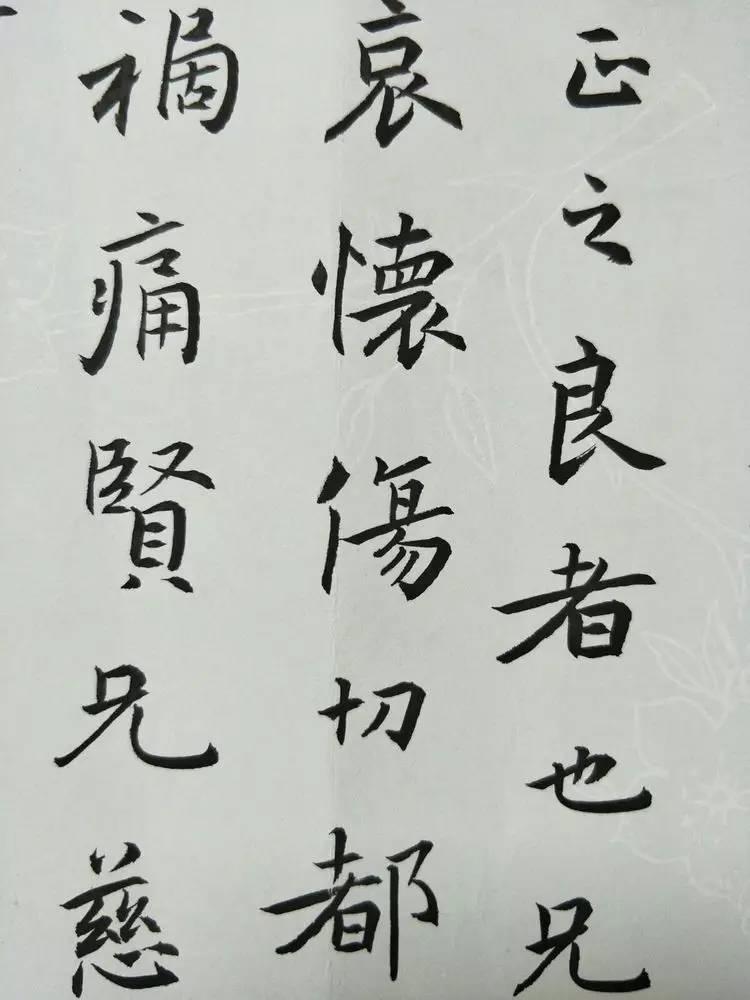 正之良者也兄
哀懷傷切都
禍痛賢兄慈